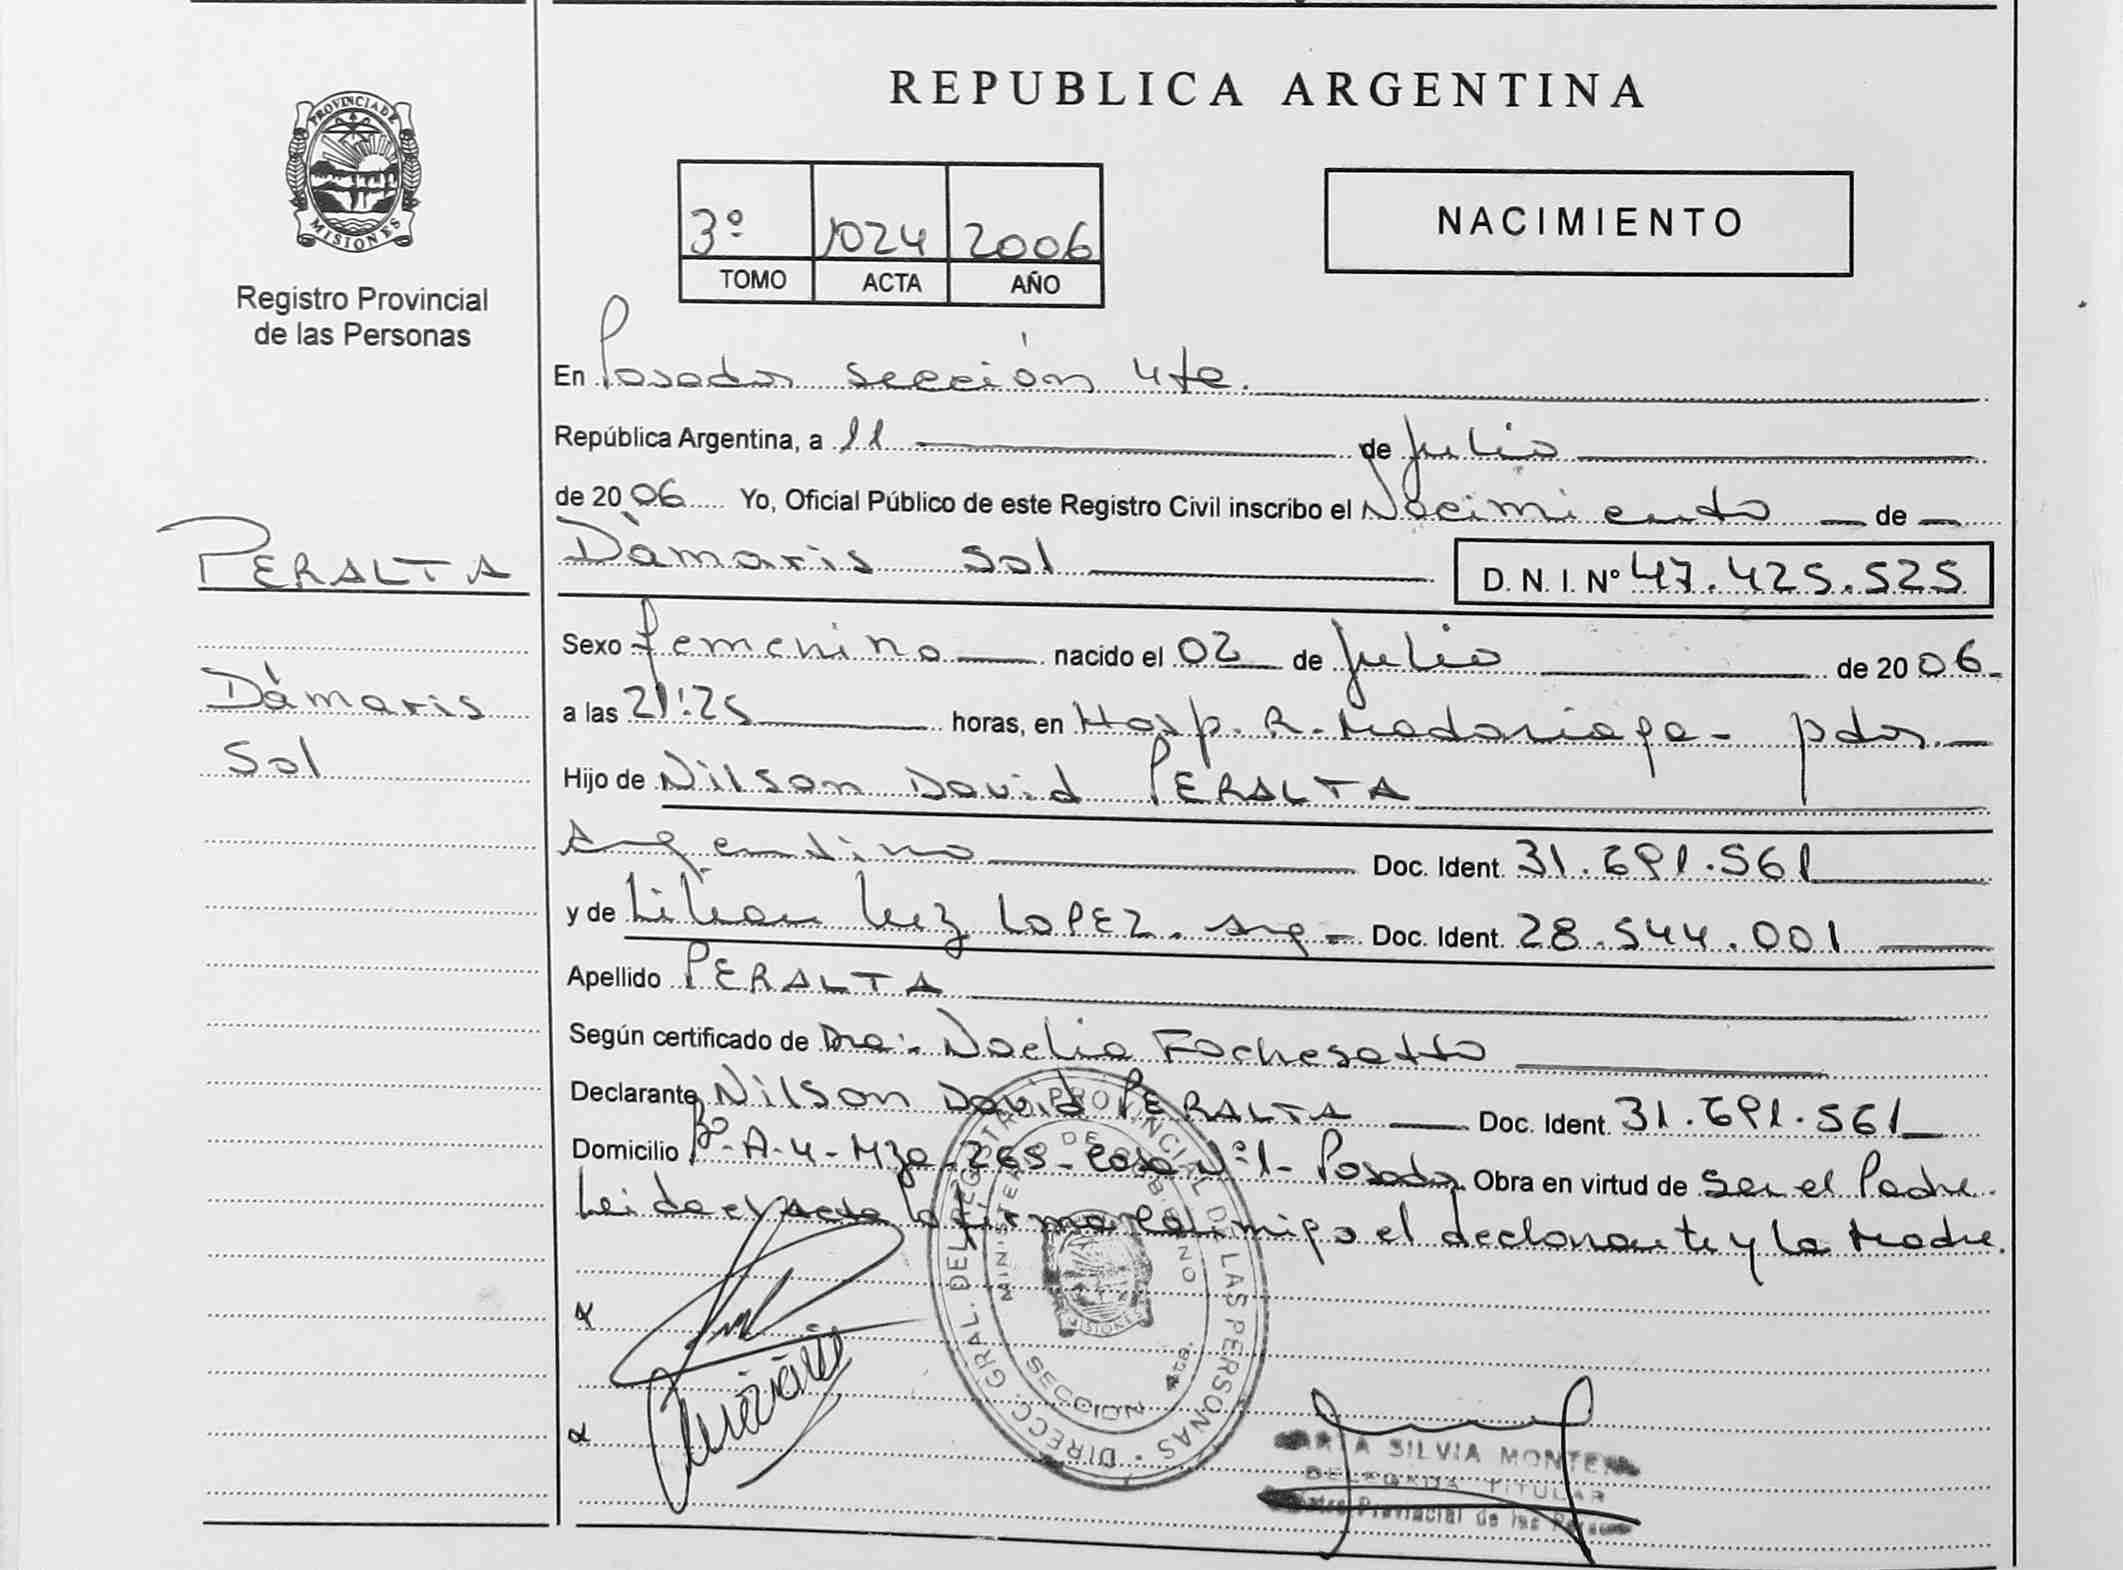 REPUBLICA ARGENTINA
PROVINCIA DE
MISIONES
Registro Provincial
de las Personas
3º 1024 2006
TOMO ACTA AÑO
NACIMIENTO
En Posadas sección 4ta.
República Argentina, a 11 de Julio
de 2006 Yo, Oficial Público de este Registro Civil inscribo el Nacimiento de
PERALTA
Dàmaris Sol D. N. I. Nº 47.425.525
Sexo femenino nacido el 02 de Julio de 2006.
Dàmaris
Sol
a las 21:25 horas, en Hosp. R. Madariaga - pdas.
Hijo de Nilson David PERALTA
Argentino Doc. Ident. 31.691.561
y de Lilian Luz LOPEZ. Arg - Doc. Ident. 28.544.001
Apellido PERALTA
Según certificado de Dra: Noelia Fochesatto
Declarante Nilson David PERALTA Doc. Ident. 31.691.561
Domicilio Bº-A-4-Mza-265-Casa Nº1- Posadas. Obra en virtud de Ser el Padre.
Leida el acta la firman conmigo el declarante y la Madre.
DIRECC. GRAL. DEL REGISTRO PROVINCIAL DE LAS PERSONAS
MINISTERIO DE GOBIERNO
MISIONES
SECCION 4ta.
SILVIA
DELEGADA TITULAR
Provincial de las